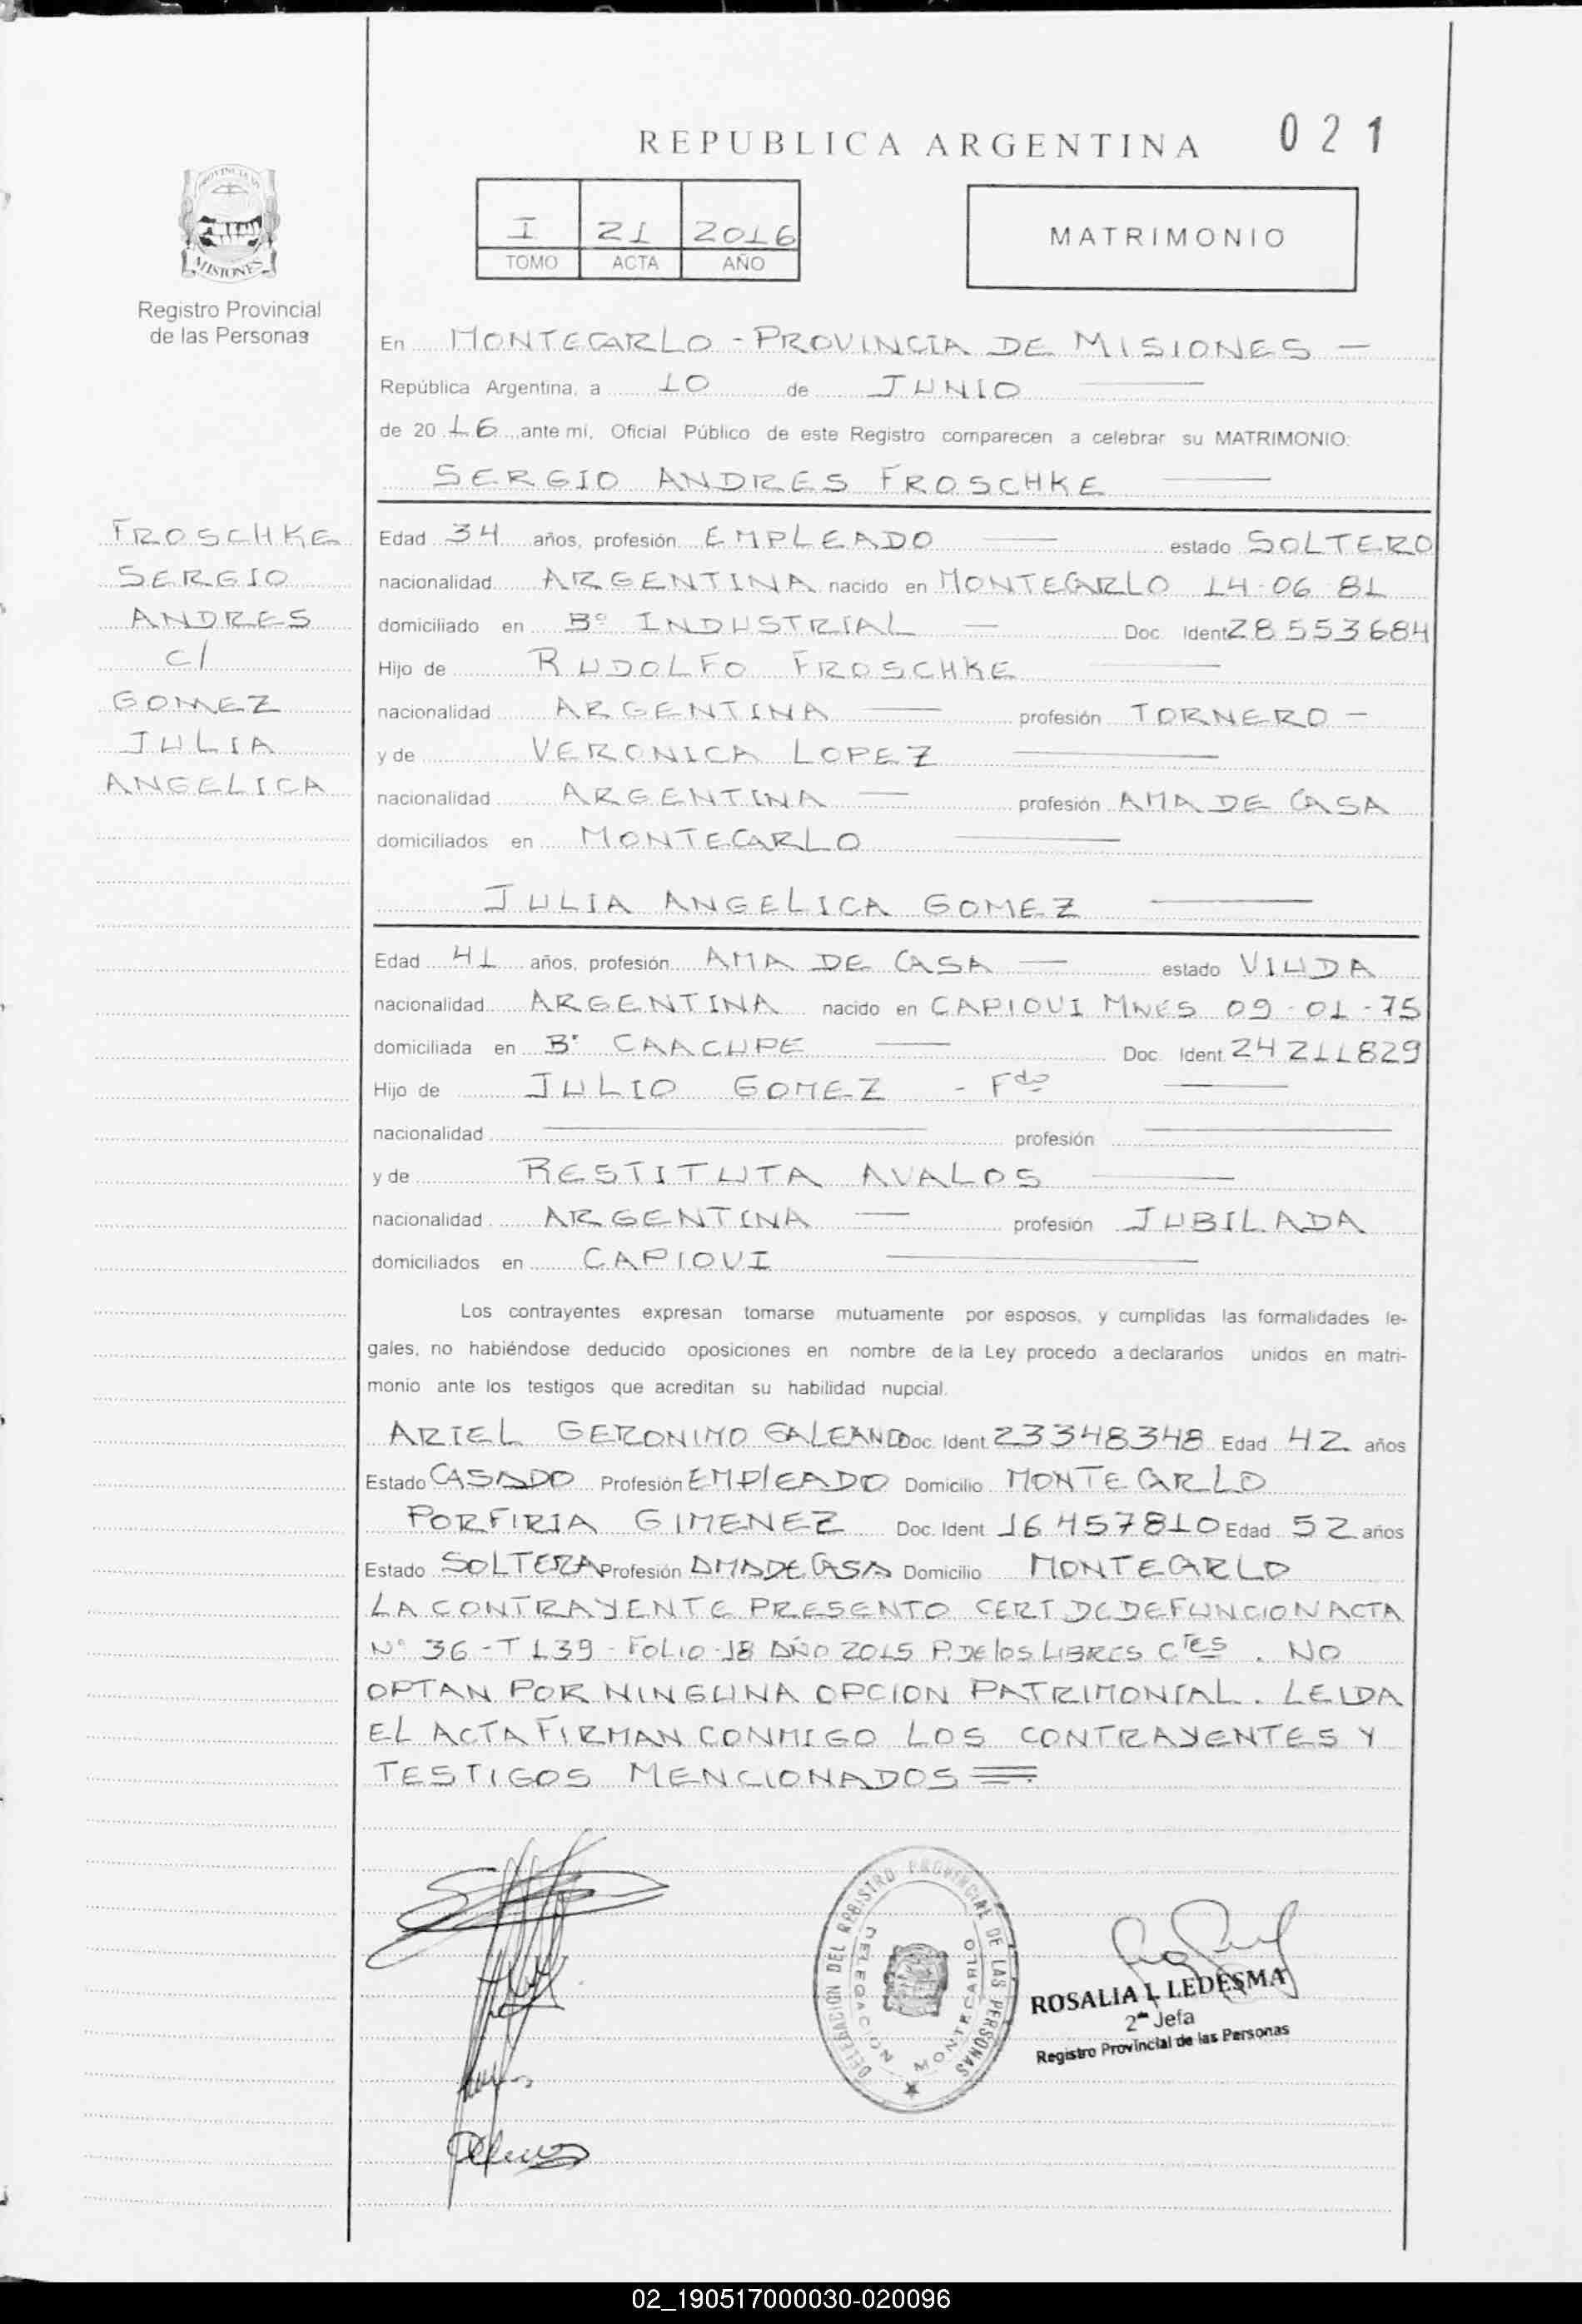 REPUBLICA ARGENTINA
021
PROVINCIA DE
MISIONES
Registro Provincial
de las Personas
I 21 2016
TOMO ACTA AÑO
MATRIMONIO
En MONTECARLO - PROVINCIA DE MISIONES -
República Argentina, a 10 de JUNIO
de 2016 ante mí, Oficial Público de este Registro comparecen a celebrar su MATRIMONIO:
SERGIO ANDRES FROSCHKE
FROSCHKE
SERGIO
ANDRES
c/
GOMEZ
JULIA
ANGELICA
Edad 34 años, profesión EMPLEADO estado SOLTERO
nacionalidad ARGENTINA nacido en MONTECARLO 14-06-81
domiciliado en Bº INDUSTRIAL - Doc. Ident 28553684
Hijo de RUDOLFO FROSCHKE
nacionalidad ARGENTINA profesión TORNERO -
y de VERONICA LOPEZ
nacionalidad ARGENTINA - profesión AMA DE CASA
domiciliados en MONTECARLO
JULIA ANGELICA GOMEZ
Edad 41 años, profesión AMA DE CASA - estado VIUDA
nacionalidad ARGENTINA nacido en CAPIOVI MNES 09-01-75
domiciliada en Bº CAACUPE Doc. Ident. 24211829
Hijo de JULIO GOMEZ - Fdo
nacionalidad profesión
y de RESTITUTA AVALOS
nacionalidad ARGENTINA - profesión JUBILADA
domiciliados en CAPIOVI
Los contrayentes expresan tomarse mutuamente por esposos, y cumplidas las formalidades le-
gales, no habiéndose deducido oposiciones en nombre de la Ley procedo a declararlos unidos en matri-
monio ante los testigos que acreditan su habilidad nupcial.
ARIEL GERONIMO GALEANO Doc. Ident. 23348348 Edad 42 años
Estado CASADO Profesión EMPLEADO Domicilio MONTECARLO
PORFIRIA GIMENEZ Doc. Ident. 16457810 Edad 52 años
Estado SOLTERA Profesión AMA DE CASA Domicilio MONTECARLO
LA CONTRAYENTE PRESENTO CERT DE DEFUNCION ACTA
Nº 36 - T 139 - FOLIO - 18 AÑO 2015 P. DE los LIBRES CTES. NO
OPTAN POR NINGUNA OPCION PATRIMONIAL. LEIDA
EL ACTA FIRMAN CONMIGO LOS CONTRAYENTES Y
TESTIGOS MENCIONADOS
DELEGACION DEL REGISTRO PROVINCIAL DE LAS PERSONAS
DELEGACION MONTECARLO
ROSALIA L LEDESMA
2da Jefa
Registro Provincial de las Personas
02_190517000030-020096